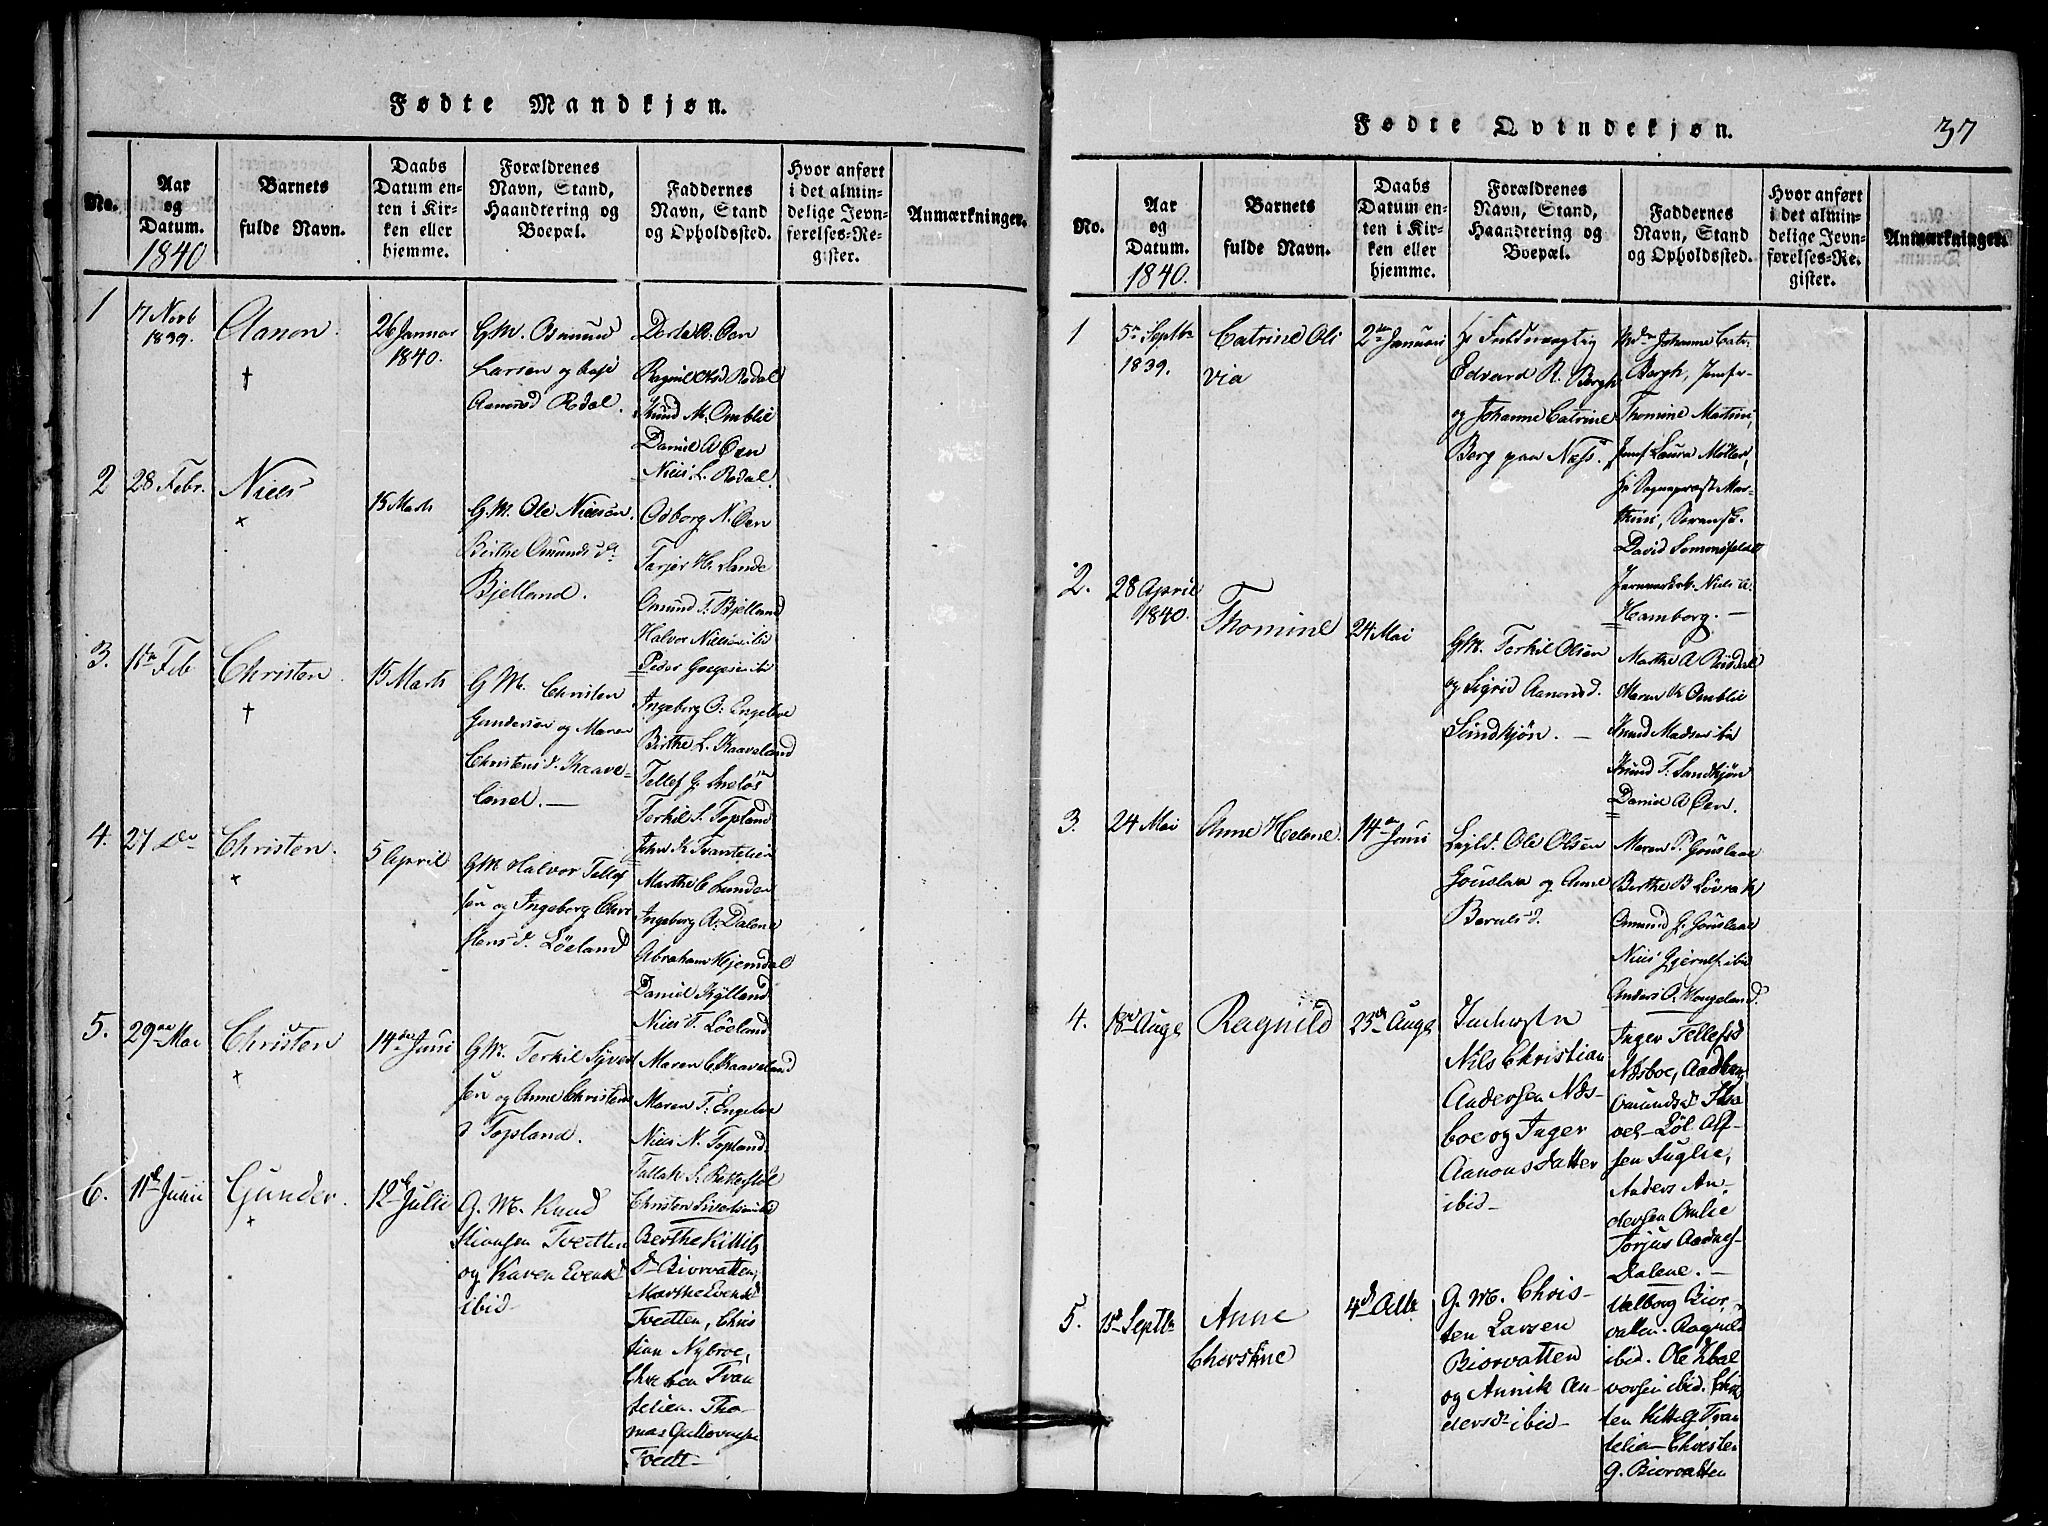 Fødte Mandkjøn.
No.
Aar
og
Datum.
1840
Barnets
fulde Navn.
Daabs
Datum en-
ten i Kir-
ken eller
hjemme.
Forældrenes
Navn, Stand,
Haandtering og
Boepæl.
Faddernes
Navn, Stand
og Opholdssted.
Hvor anført
i det almin-
delige Jevn-
førelses-Re-
gister.
Anmærkninger.
1
7 Novb
1839.
Aanon.
†
26 Januar
1840.
G.M. Osmund
Larsen og
Aanonsd Rodal.
Oen
Ragnil Rodal
Knud M. Omblie
Daniel A Oen
Niels L. Rodal.
2
28 Febr.
Niels
+
15 Marts
G.M. Ole Nielsen.
Birthe Omunds dr
Bjelland.
Odborg N. Oen
Tarjer H. Lande
Omund T. Bjelland
Halvor Nielsen ibid
Peder ibi
3.
Feb
Christen.
†
15 Marts
G M. Christen
Gundersen og Maren
Christens d. Kaave-
land. —
Ingeborg O. Engeboe
Birthe L. Kaaveland
Tellef G.
Terkil S. Topland
John K Tvantelien
4.
27 do
Christen.
+
5 April
GM Halvor Tellef
sen og Ingeborg Chri
stens d. Löeland
Marthe C Lunden
Ingeborg A. Dalene
Abraham Hjemdal
Daniel Kylland
Niels T. Löeland
5.
29 Mai
Christen
+
14 Juni
GM. Terkil Syvert
sen og Anne Christens
d Topland.
Maren C. Kaaveland
Maren T. Engeboe
Niels N. Topland
Tallak S.
Christen
6.
11d Junii
Gunder.
+
12 Julii
G. M. Knud
Stiansen Tvedten
og Karen Evensd
ibid—
Berthe Kittils
Dr Biorvatten,
Marthe Evensd
Tvedten, Chris
tian Nybroe,
Christen Tvan
telien. Tho
mas
Tvedt—
Fødte Qvindekjøn.
37
No.
Aar
og
Datum.
1840.
Barnets
fulde Navn.
Daabs
Datum en-
ten i Kir-
ken eller
hjemme.
Forældrenes
Navn, Stand,
Haandtering og
Boepæl.
Faddernes
Navn, Stand
og Opholdssted.
Hvor anført
i det almin-
delige Jevn-
førelses-Re-
gister.
Anmærkninger.
1
5 Septbr
1839.
Catrine Oli
via
2 Januari
Hr Fuldmægtig
Edvard R. Bergh
og Johanne Catrine
Berg paa Næss.
Johanne Catr.
Bergh, Jomfr.
Thomine Martini,
Jomf Laura Möller,
Hr Sogneprest Mar-
thini,
David Sommerfeldt
Niels A.
Hamborg. —
2.
28 April
1840.
Thomine
24 Mai
GM. Terkil Olsen
og Sigrid Aanonsd.
Simdkjön. —
Marthe A Risdal
Maren K Omblie
Knud Madsen ibi
Knud T. Sandkjön
Daniel A Oen.
3.
24 Mai
Anne Helene.
14 Juni
Ole Olsen
Gouslaa og Anne
Beruls d.
Maren P. Gouslaae
Berthe B Lövrak
Omund G. Gouslaae
Niels Gjerulfs ibid
Anders O. Hougeland.
4.
18d Augs
Ragnild
23d Augs
Inderster
Nils Christian
Andersen Næs-
boe og Inger
Aanonsdatter
ibid—
Inger Tellefsd
Næsboe,
Omundsd
Löl Alf-
sen Suglie,
Anders An-
dersen Omlie
Torjus Aadnes
Dalene. —
5.
15d Septbr
Anne
Chirstine
4d Octb
G. M. Chris-
ten Larsen
Biorvatten
og Annik An-
dersdr ibid—
Valborg Bior-
vatten. Ragnild
ibid. Ole Hal
vorsen ibid. Chris
ten Kittels. Tvan
telien— Christen
G. Biorvatten